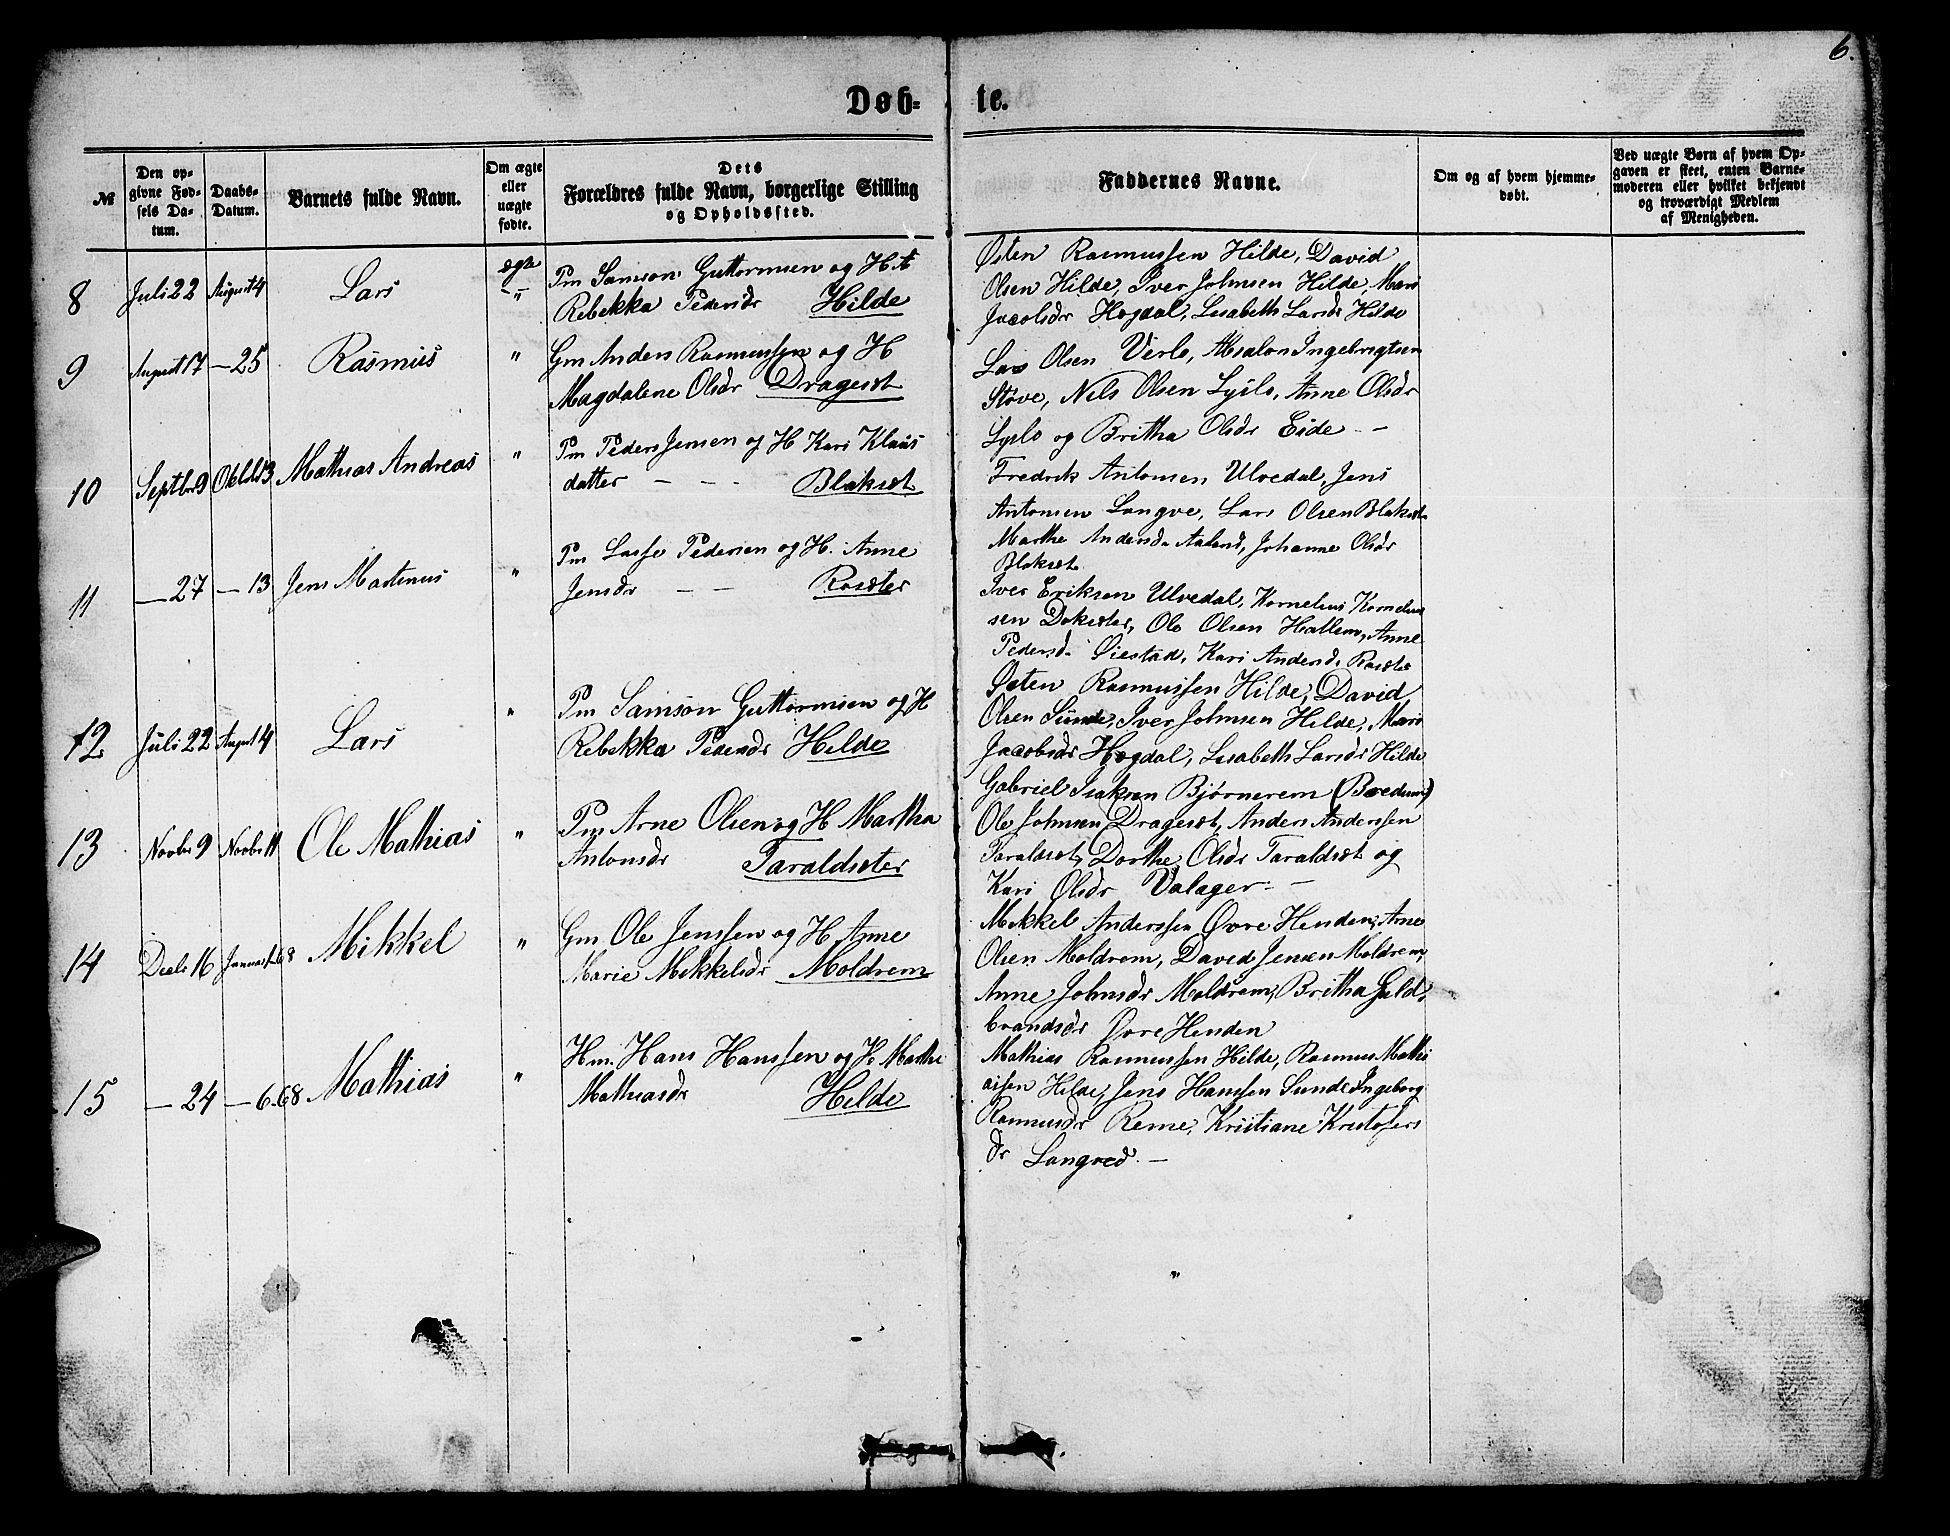 6.
Døb-te.
№
Den opgivne Fødsels Datum.
Daabs-Datum.
Barnets fulde Navn.
Om ægte eller uægte fødte.
Dets Forældres fulde Navn, borgerlige Stilling og Opholdssted.
Faddernes Navne.
Om og af hvem hjemmedøbt.
Ved uægte Børn af hvem Opgaven er skeet, enten Barnemoderen eller hvilket bekjendt og troværdigt Medlem af Menigheden.
8 Juli 22 August 4 Lars ægte
Pm Samson Guttormsen og H.
Rebekka Pedersdr Hilde
Østen Rasmussen Hilde, David
Olsen Hilde, Iver Johnsen Hilde, Mari
Jacobsdr Hogdal, Lisabeth Larsdr Hilde
9 August 17 — 25 Rasmus "
Gm Anders Rasmussen og H
Magdalene Olsdr Dragesæt
Lars Olsen Verlo, Absalon Ingebrigtsen
Støve, Nils Olsen Lyslo, Anne Olsdr
Lyslo og Britha Olsdr Eide - -
10 Septbr 9 Octbr 13 Mathias Andreas "
Pm Peder Jensen og H Kari Klaus
datter — - - Blaksæt
Fredrik Antonsen Ulvedal, Jens
Antonsen Langve, Lars Olsen Blaksæt
Marthe Andersd. Aaland, Johanne Olsdr
Blaksæt
11 — 27 — 13 Jens Martinus "
Pm Lasse Pedersen og H. Anne
Jensdr — — Rosæter
Iver Eriksen Ulvedal, Kornelius Kornelius
sen Dokester, Ole Olsen Hallem, Anne
Pedersd. Øiestad, Kari Andersd. Rosæter
12 Juli 22 August 4 Lars "
Pm Samson Guttormsen og H
Rebekka Pedersdr Hilde
Østen Rasmussen Hilde, David
Olsen Sunde, Iver Johnsen Hilde, Mari
Jacobsdr Hogdal, Lisabeth Larsdr Hilde
13 Novbr 9 Novbr 11 Ole Mathias "
Pm Arne Olsen og H Martha
Antonsdr Taraldsæter
Gabriel Isaksen Bjørnerem
Ole Johnsen Dragesæt, Anders Anderssen
Taraldsæt, Dorthe Olsdr Taraldsæt og
Kari Olsdr Valager. —
14 Decbr 16 Januar 1-68 Mikkel "
Gm Ole Jenssen og H Anne
Marie Mikkelsdr Moldrem
Mikkel Anderssen Øvre Henden, Arne
Olsen Moldrem, David Jensen Moldrem,
Anne Johnsdr Moldrem, Britha Guld
brandsdr Øvre Henden
15 — 24 — 6.68 Mathias "
Hm. Hans Hanssen og H. Marthe
Mathiasdr Hilde
Mathias Rasmussen Hilde, Rasmus Mathi
assen Hilde, Jens Hanssen Sunde, Ingeborg
Rasmusdr Reme, Kristiane Kristofers
dr Langved. —